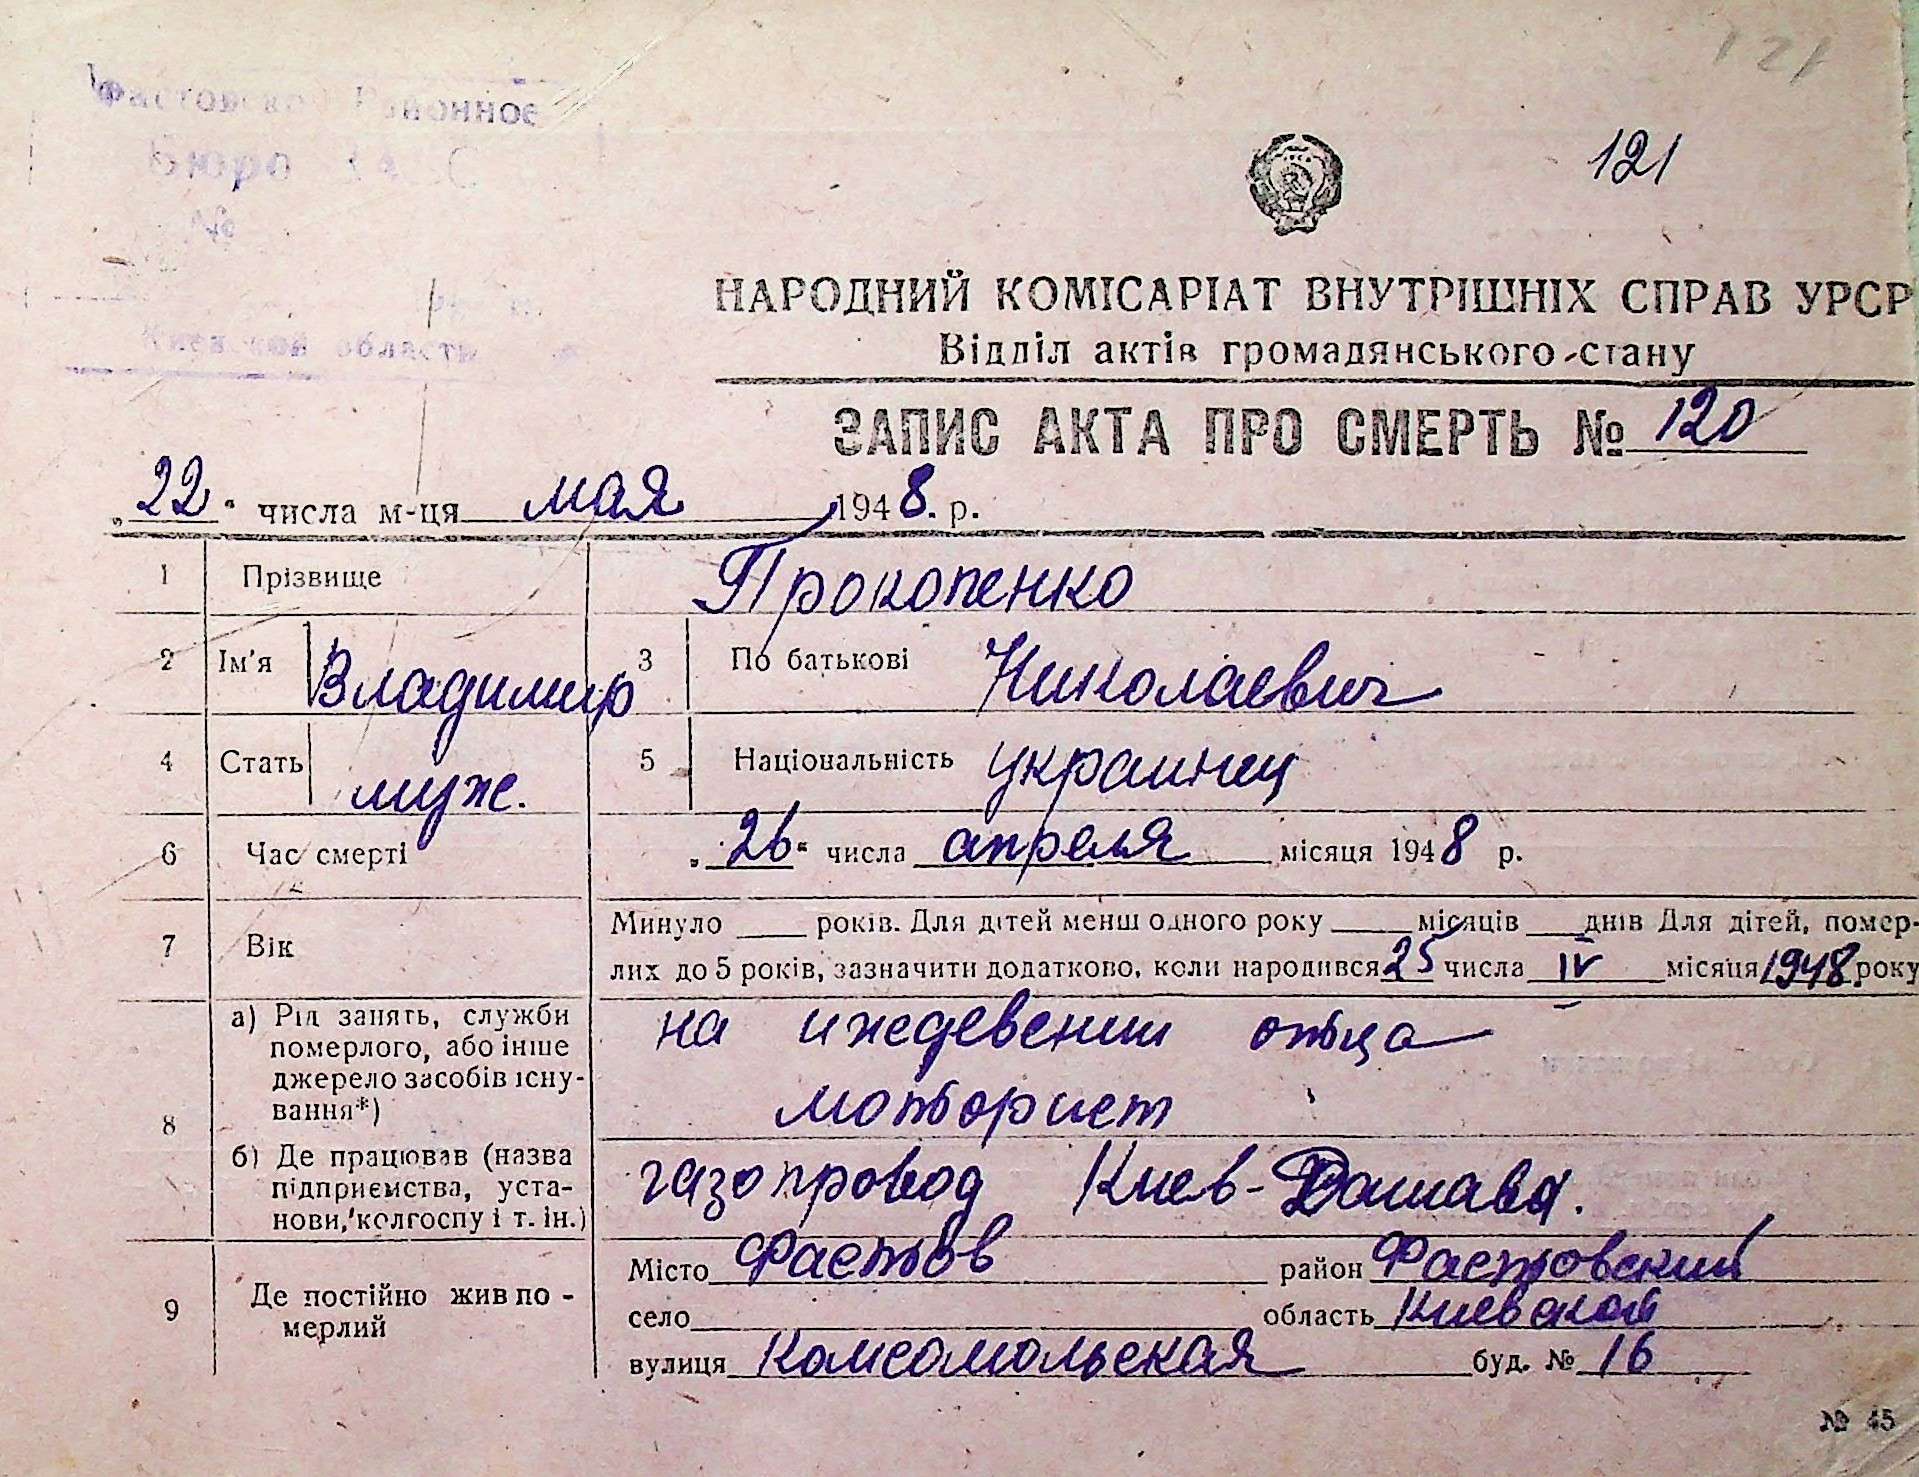 121
Фастовское Районное
Бюро ЗАГС
№
121
НАРОДНИЙ КОМІСАРІАТ ВНУТРІШНІХ СПРАВ УРСР
Киевской области
Відділ актів громадянського стану
ЗАПИС АКТА ПРО СМЕРТЬ № 120
„22“ числа м-ця мая 1948. р.
1 Прізвище Прокопенко
2 Ім'я Владимир 3 По батькові Николаевич
4 Стать муж. 5 Національність украинец
6 Час смерті „26“ числа апреля місяця 1948 р.
7 Вік Минуло ____ років. Для дітей менш одного року ____ місяців ____ днів Для дітей, помер-
лих до 5 років, зазначити додатково, коли народився 25 числа IV місяця 1948. року
8 а) Рід занять, служби померлого, або інше джерело засобів існу-вання*) на иждевении отца
моторист
б) Де працював (назва підприємства, уста-нови, колгоспу і т. ін.) газопровод Киев-Дашава.
9 Де постійно жив по-мерлий Місто Фастов район Фастовский
село ____ область Киевской
вулиця Комсомольская буд. № 16
№ 45